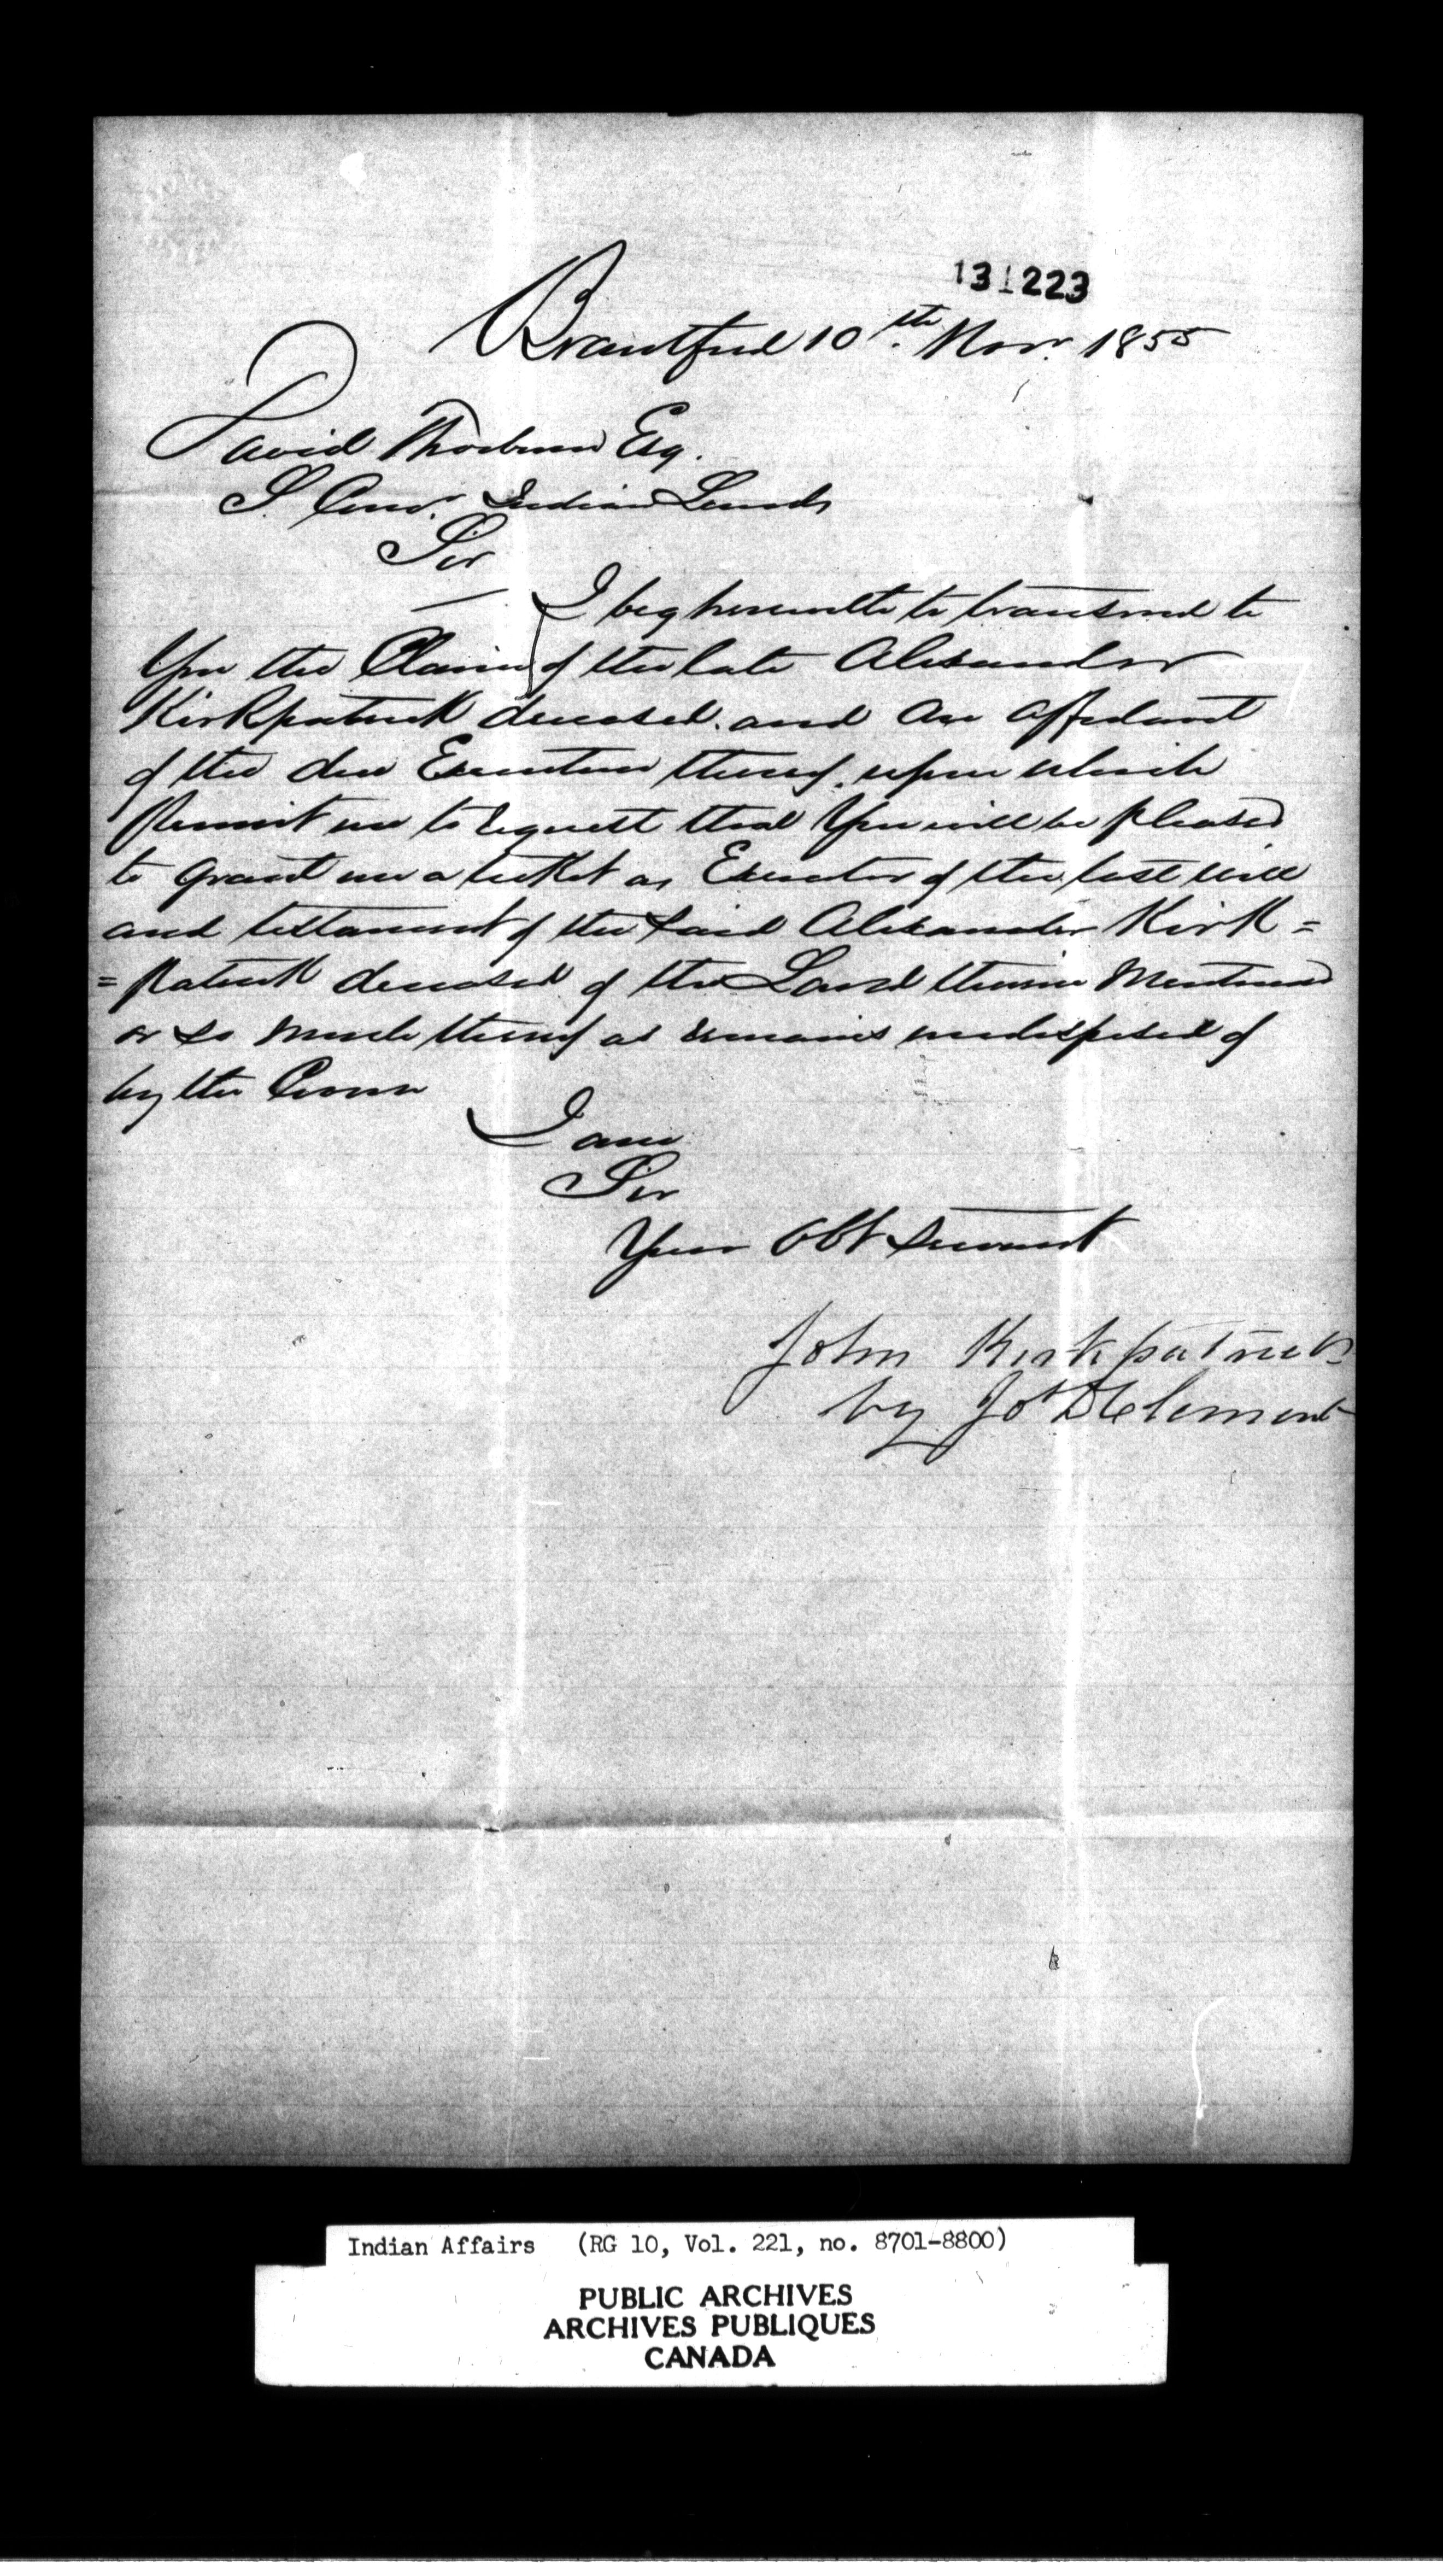 131223
Brantford 10th. Nov. 1855
David Thorburn Esq.
S. Com. Indian Lands
Sir
I beg herewith to transmit to
You the Claim of the late Alexander
Kirkpatrick deceased. and an affidavit
of the due Execution thereof. upon which
Permit me to request that You will be pleased
to grant me a ticket as Executor of the last will
and testament of the said Alexander Kirk=
=patrick deceased of the Land therein Mentioned
or so much thereof as remains undisposed of
by the Crown
I am
Sir
Your Obt Servant
John Kirkpatrick
by Jos D Clement
Indian Affairs (RG 10, Vol. 221, no. 8701-8800)
PUBLIC ARCHIVES
ARCHIVES PUBLIQUES
CANADA